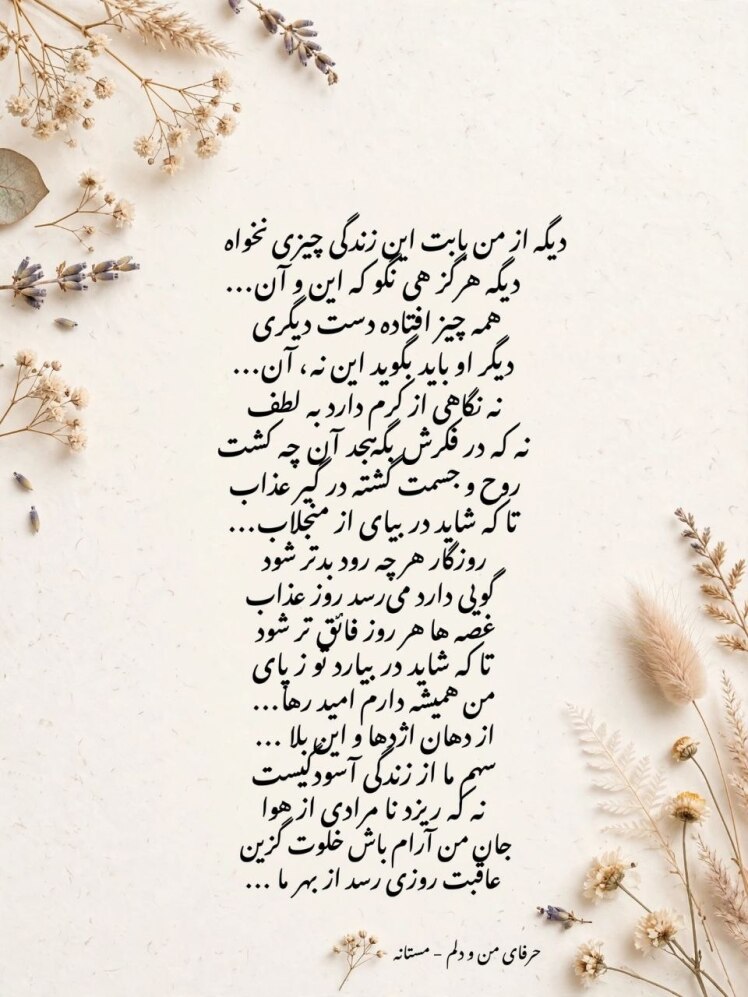 دیگه از من بابت این زندگی چیزی نخواه
دیگه هرگز هی نگو که این و آن...
همه چیز افتاده دست دیگری
دیگر او باید بگوید این نه، آن...
نه نگاهی از کرم دارد به لطف
نه که در فکرش بگهبجد آن چه کشت
روح و جسمت گشته درگیر عذاب
تا که شاید در بیای از منجلاب...
روزگار هر چه رود بدتر شود
گویی دارد می‌رسد روز عذاب
غصه ها هر روز فائق تر شود
تا که شاید در بیارد تو ز پای
من همیشه دارم امید رها...
از دهان اژدها و این بلا ...
سهم ما از زندگی آسودگیست
نه که ریزد نا مرادی از هوا
جان من آرام باش خلوت گزین
عاقبت روزی رسد از بهر ما ...
حرفای من و دلم - مستانه